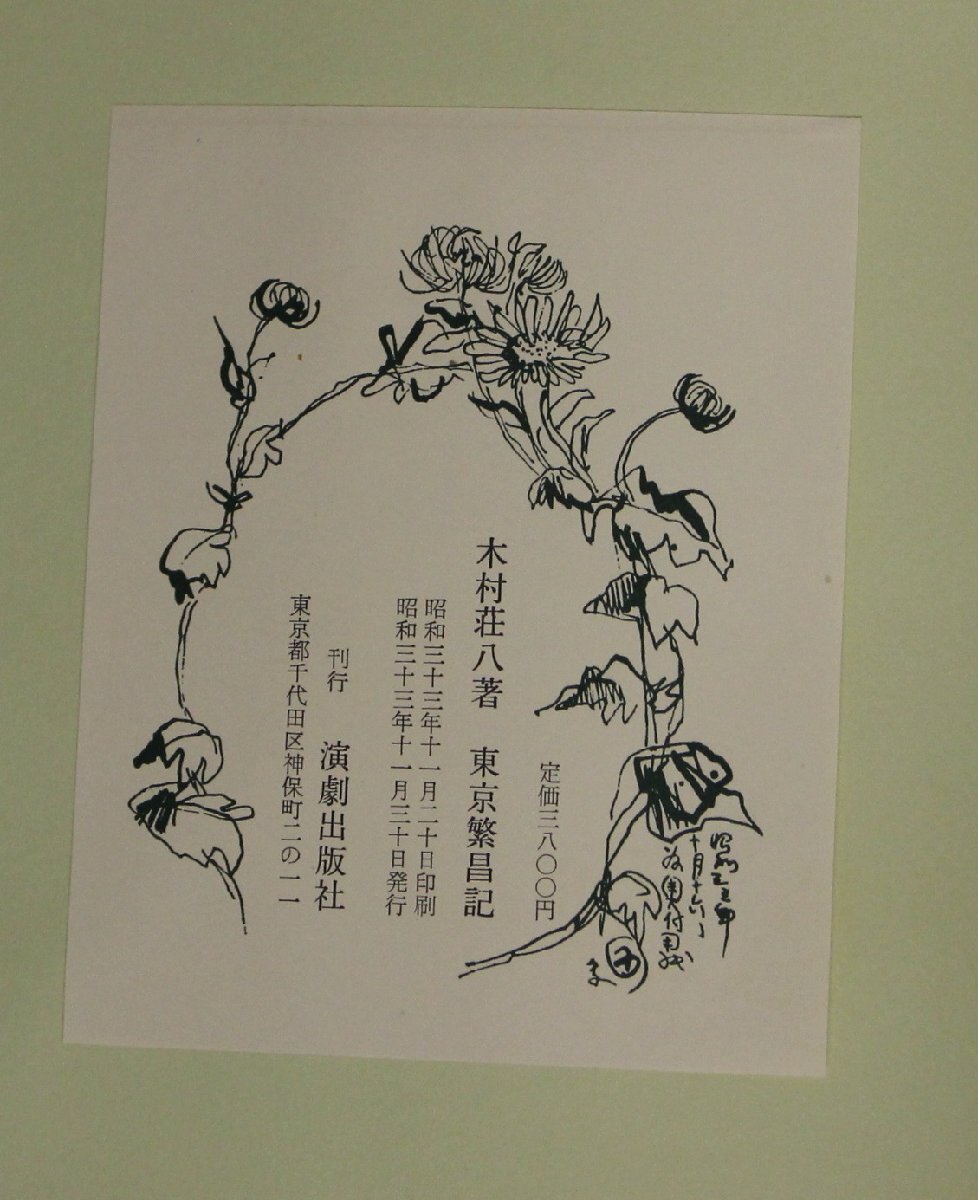 定価三八〇〇円
木村荘八著 東京繁昌記
昭和三十三年十一月二十日印刷
昭和三十三年十一月三十日発行
刊行 演劇出版社
東京都千代田区神保町二の一一